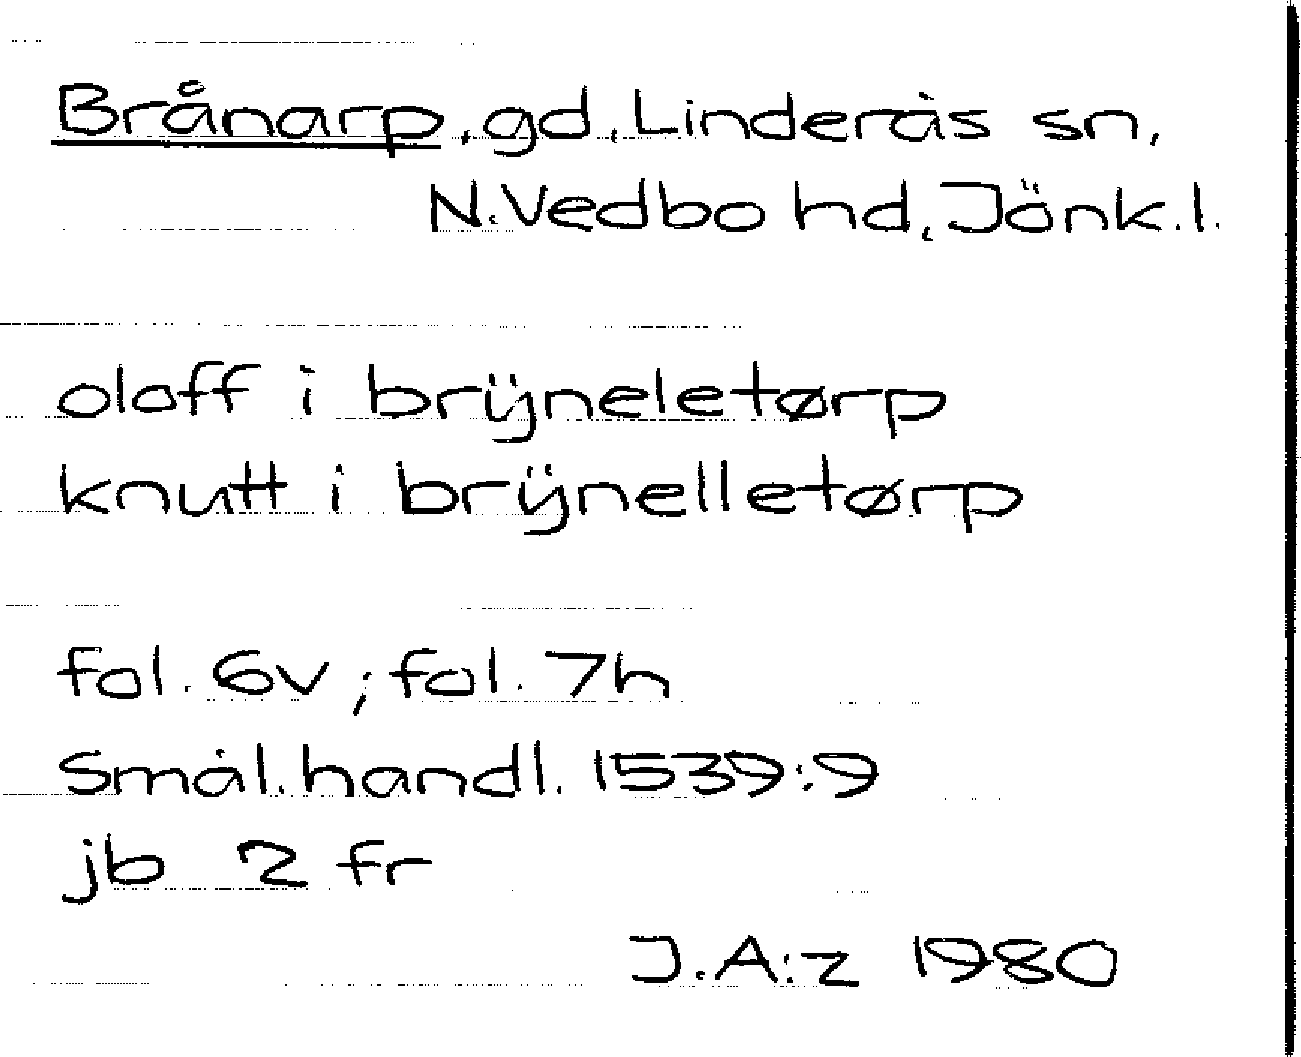 Brånarp, gd, Linderås sn,
N. Vedbo hd, Jönk. l.
oloff i brÿneletørp
knutt i brÿnelletørp
fol. 6v; fol. 7h
Smål. handl. 1539:9
jb 2 fr
J.A:z 1980